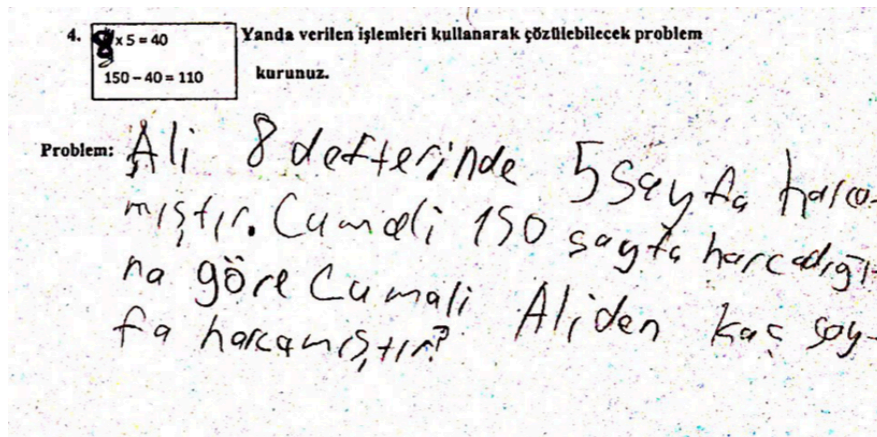 4. 8 x 5 = 40 Yanda verilen işlemleri kullanarak çözülebilecek problem
150 – 40 = 110 kurunuz.
Problem: Ali 8 defterinde 5 sayfa harca-
mıştır. Cumali 150 sayfa harcadığı-
na göre Cumali Aliden kaç say-
fa harcamıştır?